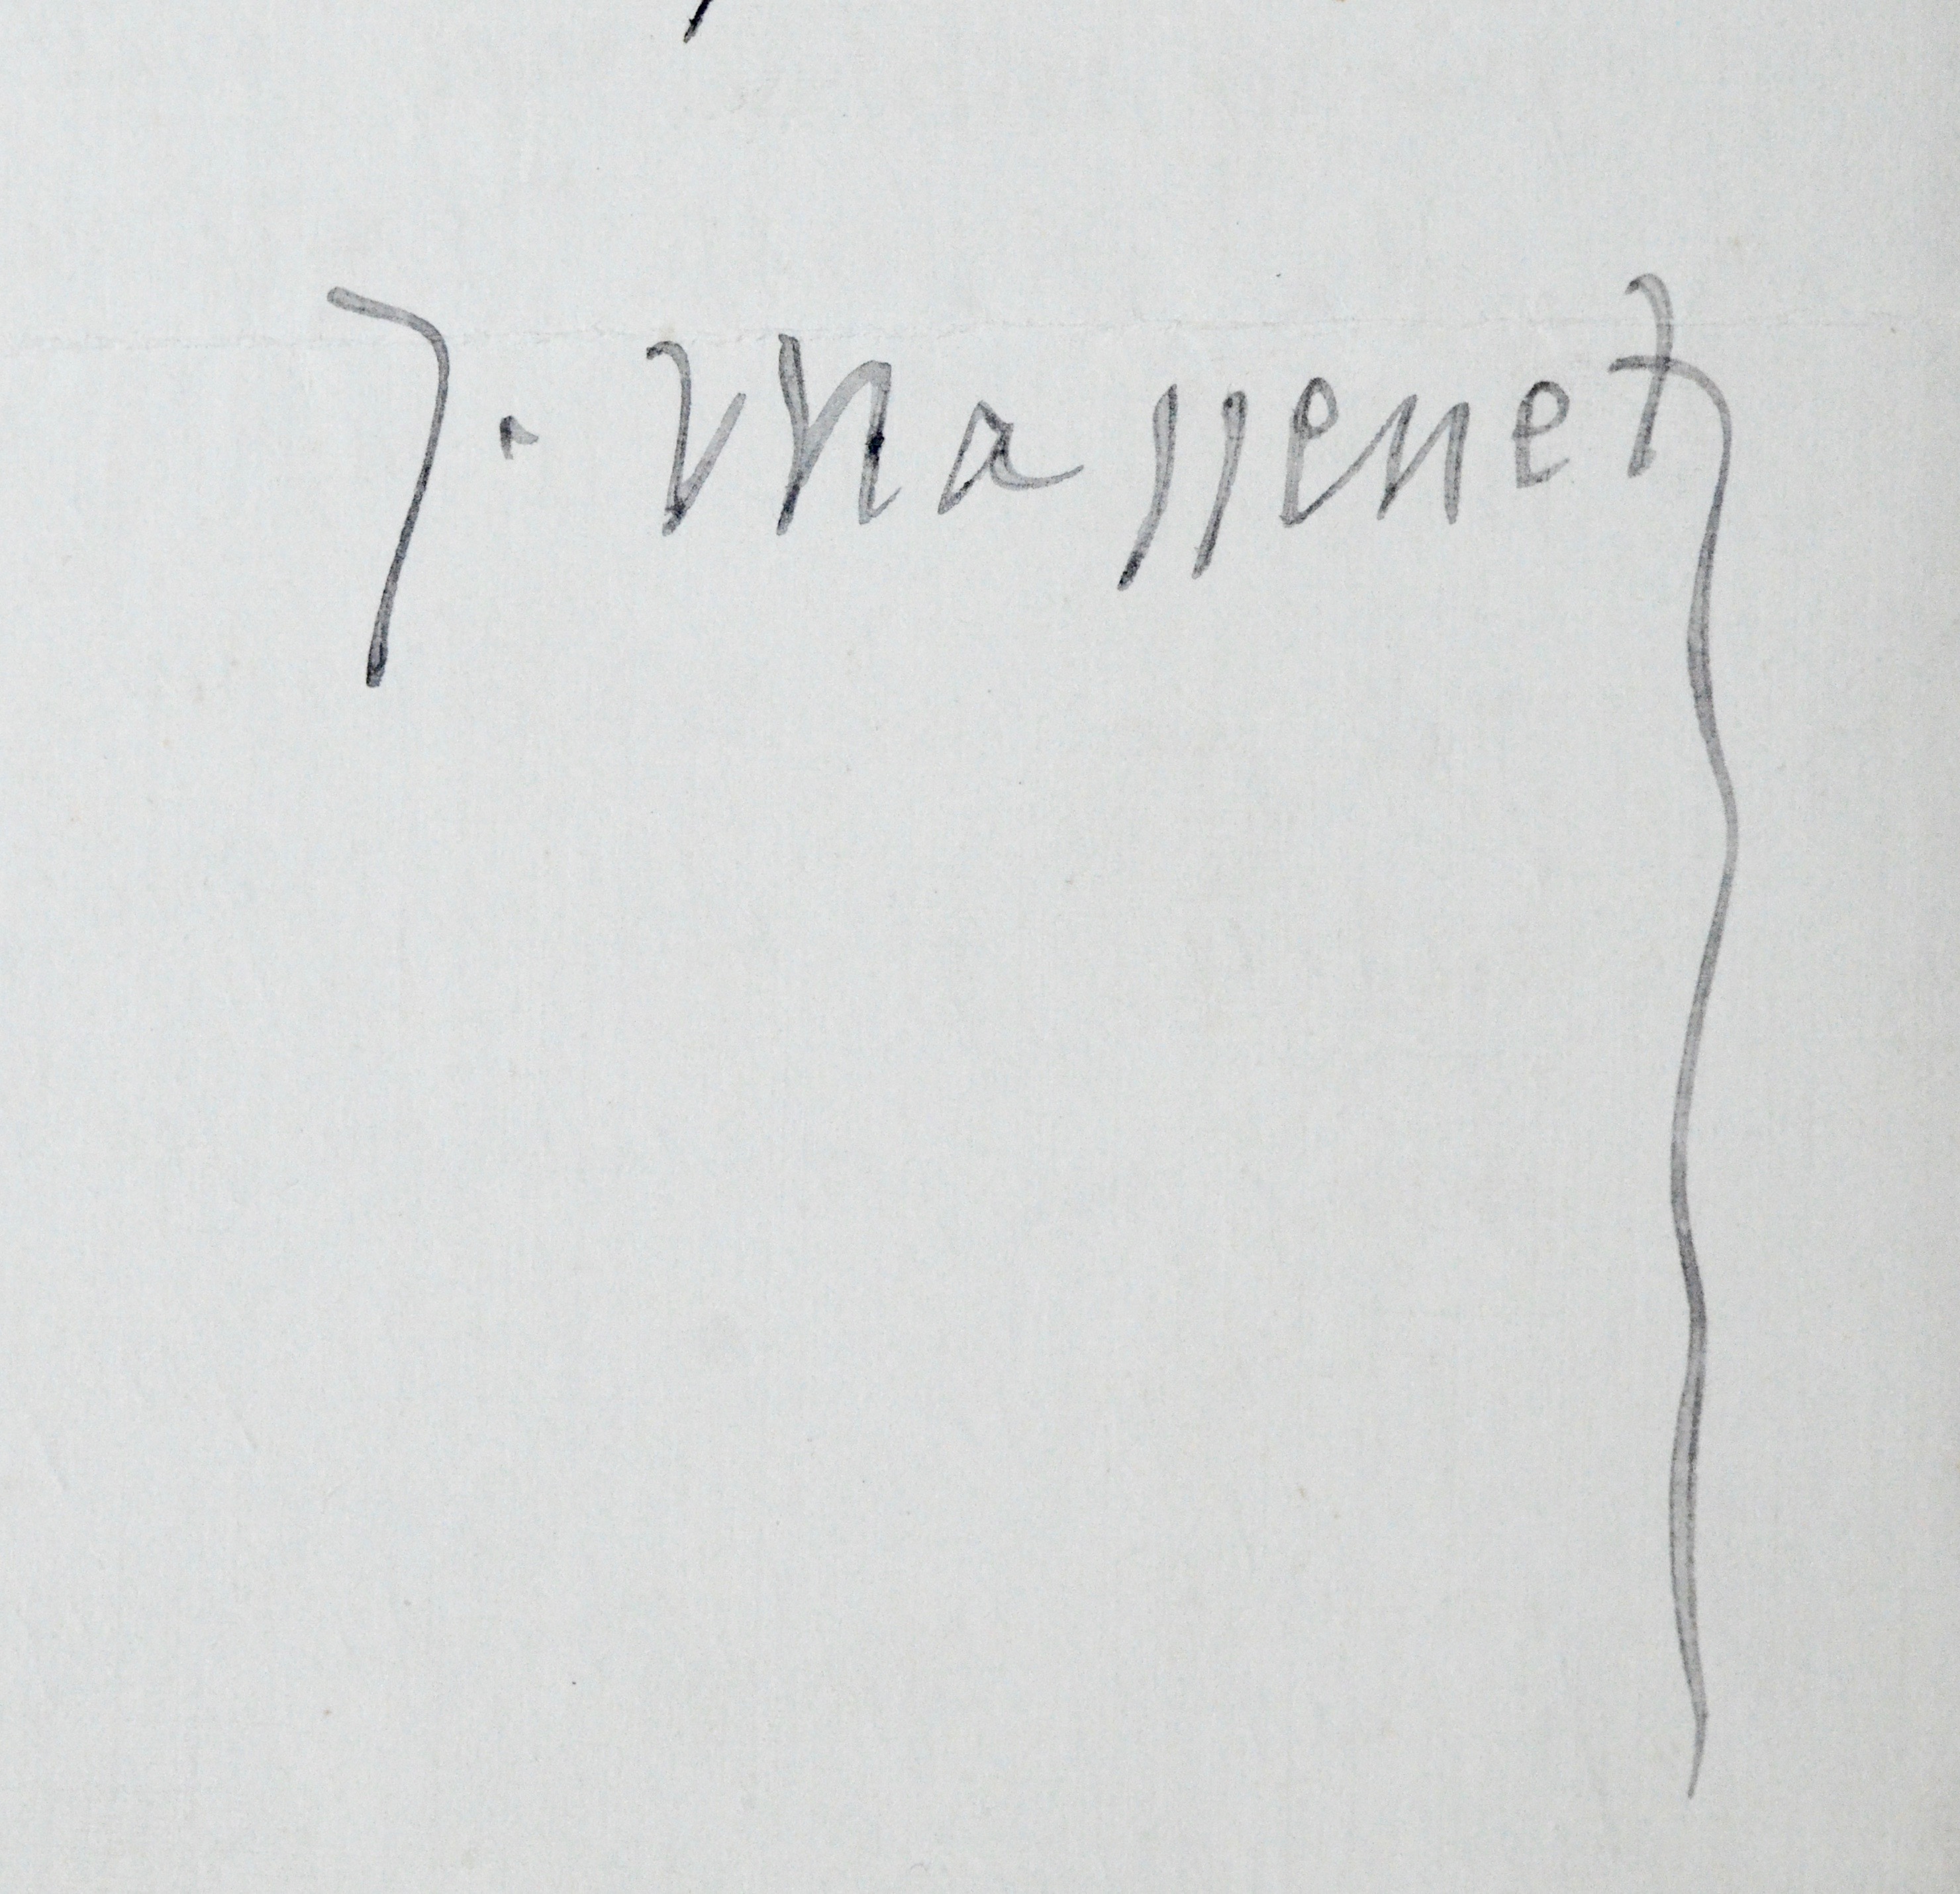 J. Massenet